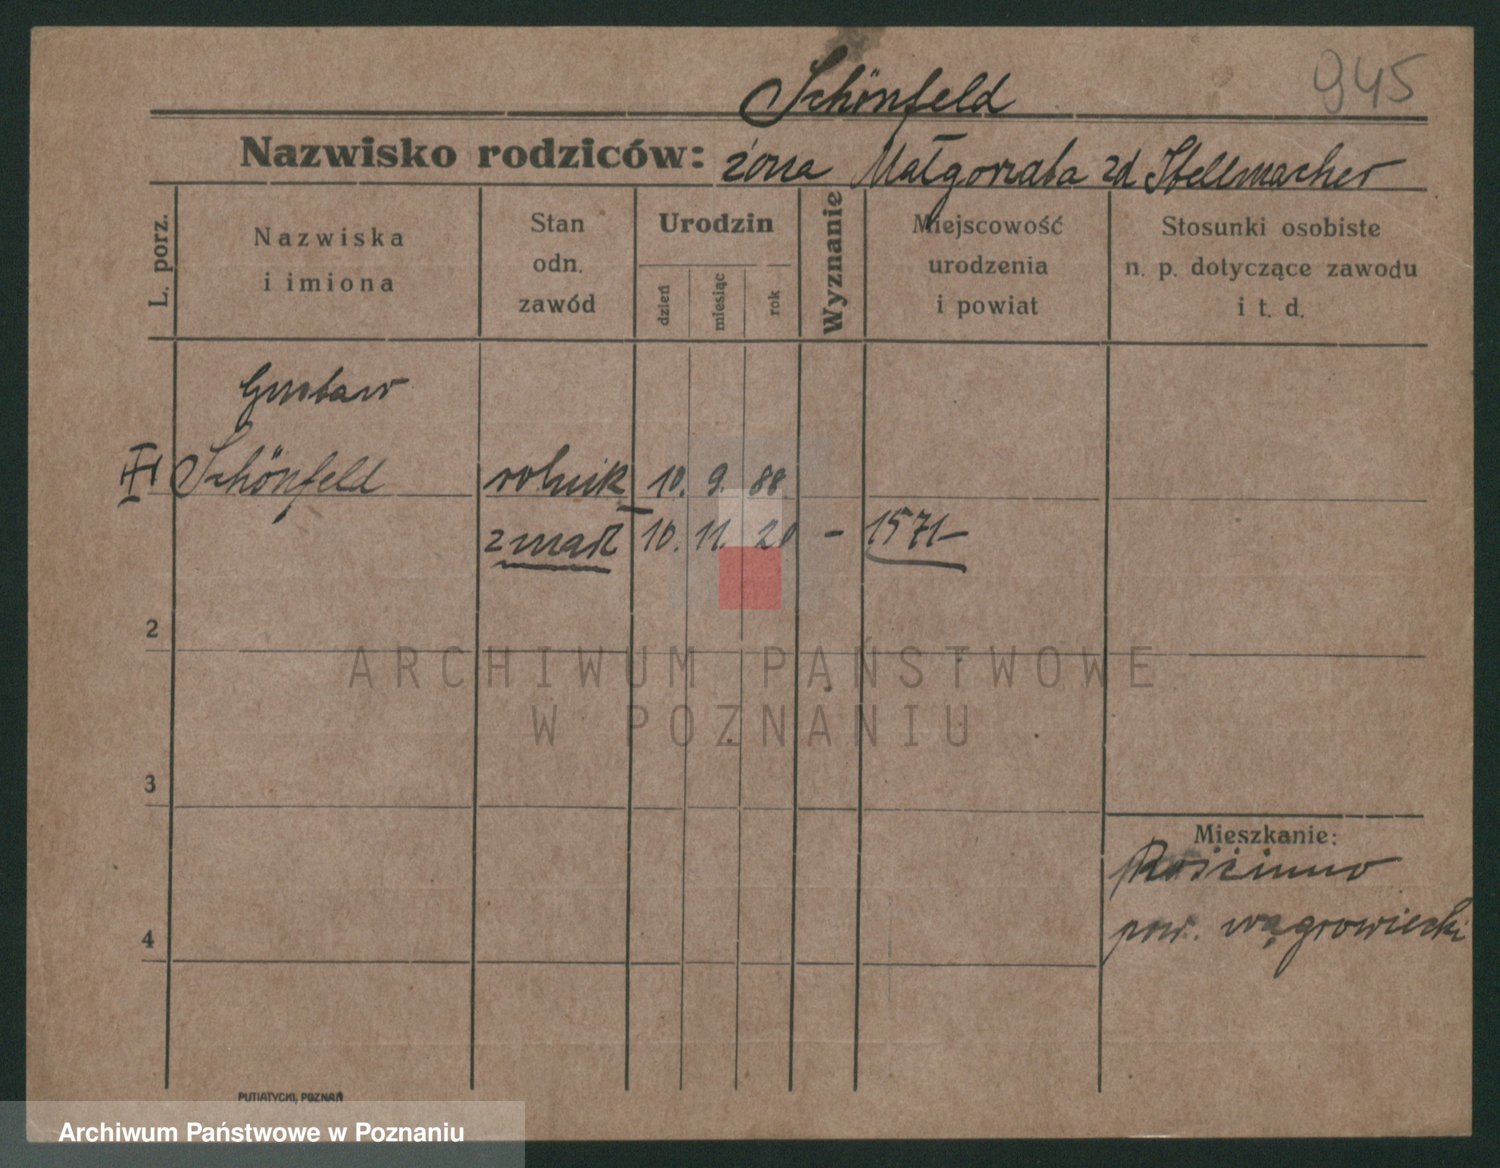 945
Schönfeld
Nazwisko rodziców: żona Małgorzata zd Stellmacher
L. porz.
Nazwiska
i imiona
Stan
odn.
zawód
Urodzin
dzień
miesiąc
rok
Wyznanie
Miejscowość
urodzenia
i powiat
Stosunki osobiste
n. p. dotyczące zawodu
i t. d.
Gustaw
Schönfeld rolnik 10. 9. 88
zmarł 10. 11. 20 – 1571–
2
ARCHIWUM PAŃSTWOWE
W POZNANIU
3
Mieszkanie:
Rościnno
pow. wągrowiecki
4
PUTIATYCKI, POZNAŃ
Archiwum Państwowe w Poznaniu